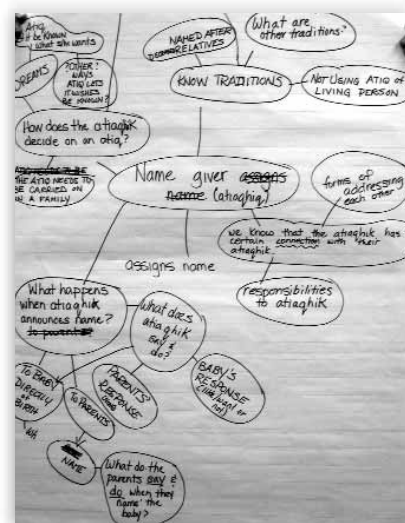 Atiq
it be KNOWN
what she wants
DREAMS
?OTHER?
WAYS
ATIQ LETS
ITS WISHES
BE KNOWN?
NAMED AFTER
RELATIVES
What are
other traditions?
KNOW TRADITIONS
NOT USING ATIQ OF
LIVING PERSON
How does the atiaqhik
decide on an atiq?
THE ATIQ NEEDS TO
BE CARRIED ON
IN A FAMILY
Name giver assigns
name (atiaqhiq)
forms of
addressing
each other
we know that the atiaqhik has
certain connection with their
atiaqhik
assigns name
responsibilities
to atiaqhik
What happens
when atiaqhik
announces name?
to parents?
What does
atiaqhik
say &
do?
TO BABY
DIRECTLY
at
BIRTH
TO PARENTS
PARENTS'
RESPONSE
BABY'S
RESPONSE
(like/want or
not)
NAME
What do the
parents say &
do when they
name the
baby?